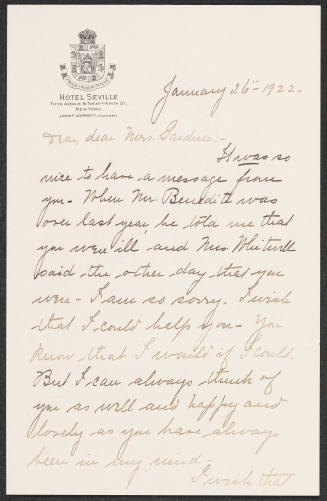 HOTEL SEVILLE
FIFTH AVENUE & TWENTY-NINTH ST,
NEW YORK.
JOHN F. GARRETY, MANAGER.
January 26th 1922-
Dear, dear Mrs. Gardner:-
It was so
nice to have a message from
you- When Mr. Benedict was
over last year, he told me that
you were ill and Mrs. Whitwell
said the other day that you
were- I am so sorry. I wish
that I could help you- You
know that I would if I could.
But I can always think of
you as well and happy and
lovely as you have always
been in my mind-
I wish that